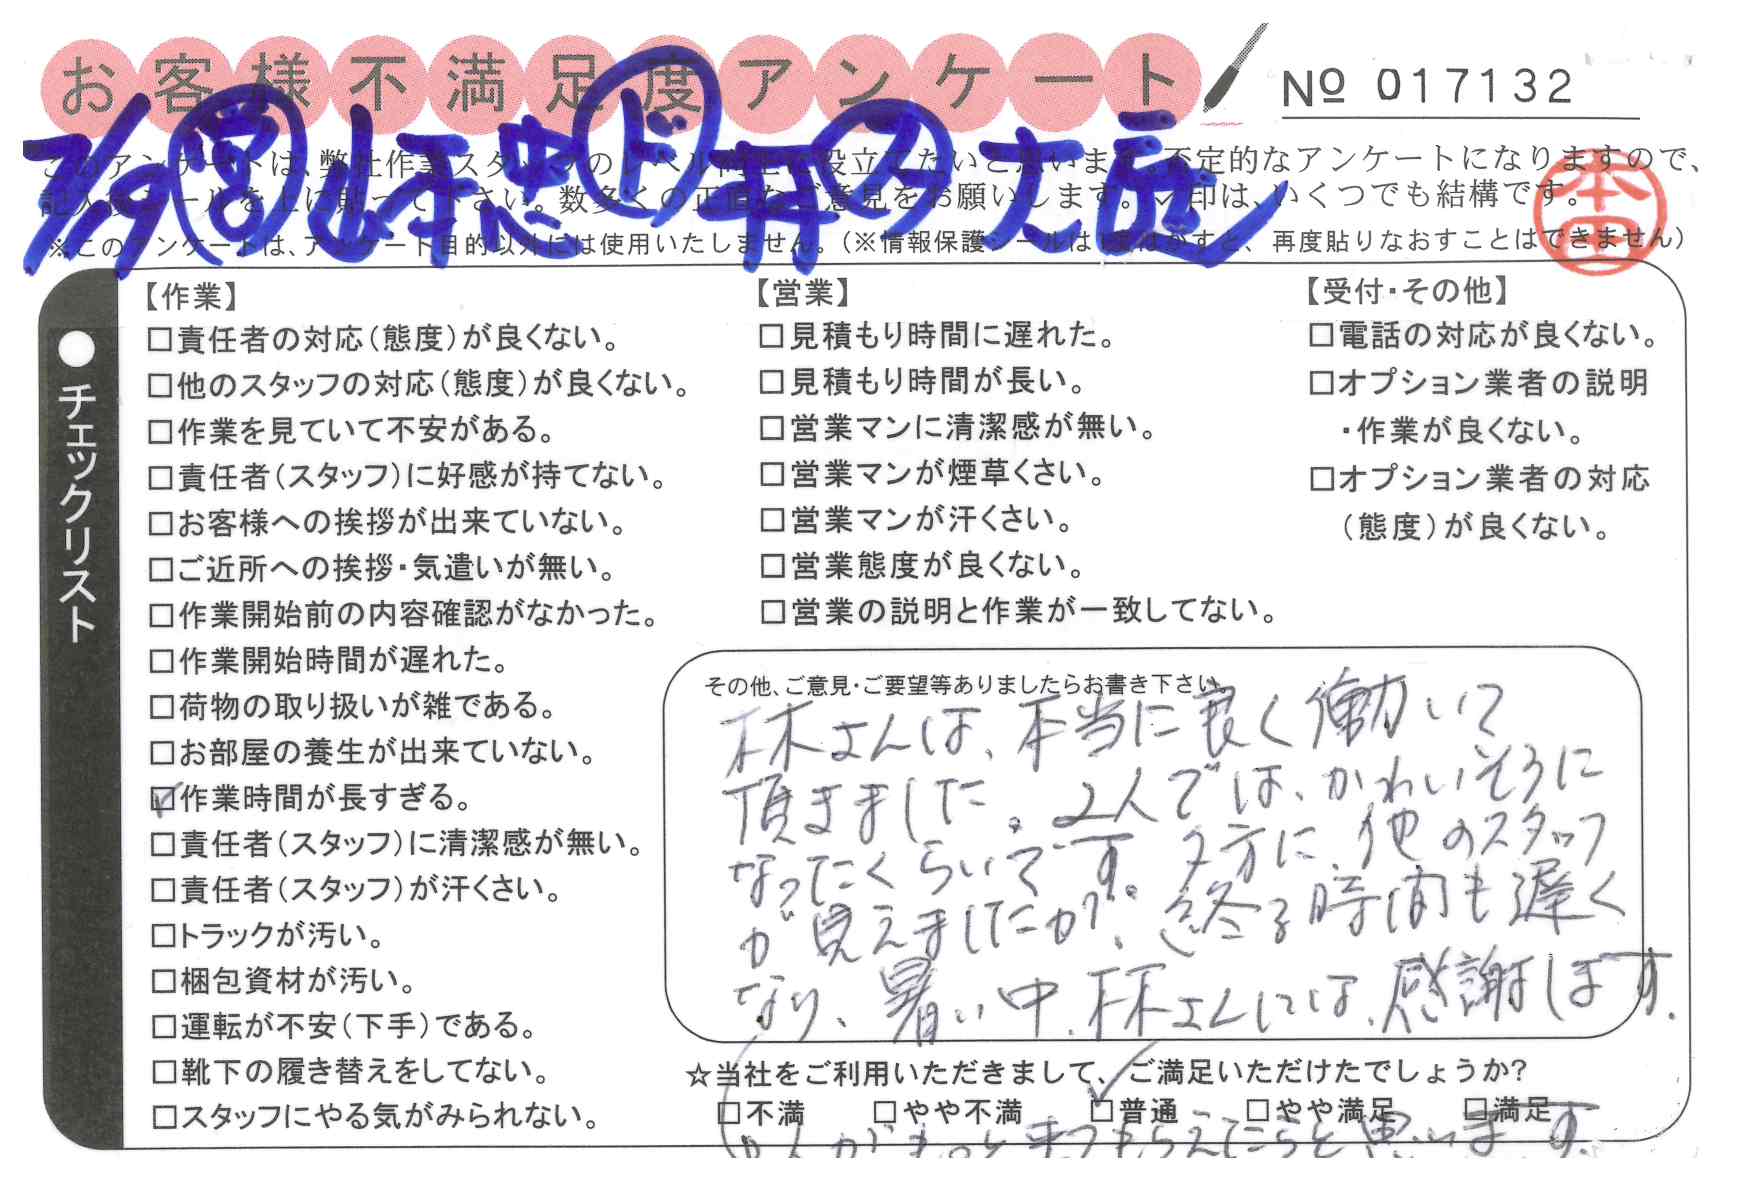 お客様不満足度アンケート
№ 017132
7/19 営 山本忠 ド 林 ス 大辺
このアンケートは、弊社作業スタッフのレベル向上に役立てたいと思います。不定的なアンケートになりますので、
記入後シールを上に貼って下さい。数多くの正直なご意見をお願いします。✓印は、いくつでも結構です。
※このアンケートは、アンケート目的以外には使用いたしません。(※情報保護シールは1度はがすと、再度貼りなおすことはできません)
本田
●チェックリスト
【作業】
□責任者の対応(態度)が良くない。
□他のスタッフの対応(態度)が良くない。
□作業を見ていて不安がある。
□責任者(スタッフ)に好感が持てない。
□お客様への挨拶が出来ていない。
□ご近所への挨拶・気遣いが無い。
□作業開始前の内容確認がなかった。
□作業開始時間が遅れた。
□荷物の取り扱いが雑である。
□お部屋の養生が出来ていない。
☑作業時間が長すぎる。
□責任者(スタッフ)に清潔感が無い。
□責任者(スタッフ)が汗くさい。
□トラックが汚い。
□梱包資材が汚い。
□運転が不安(下手)である。
□靴下の履き替えをしてない。
□スタッフにやる気がみられない。
【営業】
□見積もり時間に遅れた。
□見積もり時間が長い。
□営業マンに清潔感が無い。
□営業マンが煙草くさい。
□営業マンが汗くさい。
□営業態度が良くない。
□営業の説明と作業が一致してない。
【受付・その他】
□電話の対応が良くない。
□オプション業者の説明
・作業が良くない。
□オプション業者の対応
(態度)が良くない。
その他、ご意見・ご要望等ありましたらお書き下さい。
林さんは、本当に良く働いて
頂きました。2人では、かわいそうに
なったくらいです。夕方に、他のスタッフ
が見えましたが、終る時間も遅く
なり、暑い中、林さんには、感謝します。
☆当社をご利用いただきまして、ご満足いただけたでしょうか?
□不満 □やや不満 ☑普通 □やや満足 □満足
がもっと 来てもらえたらと思います。